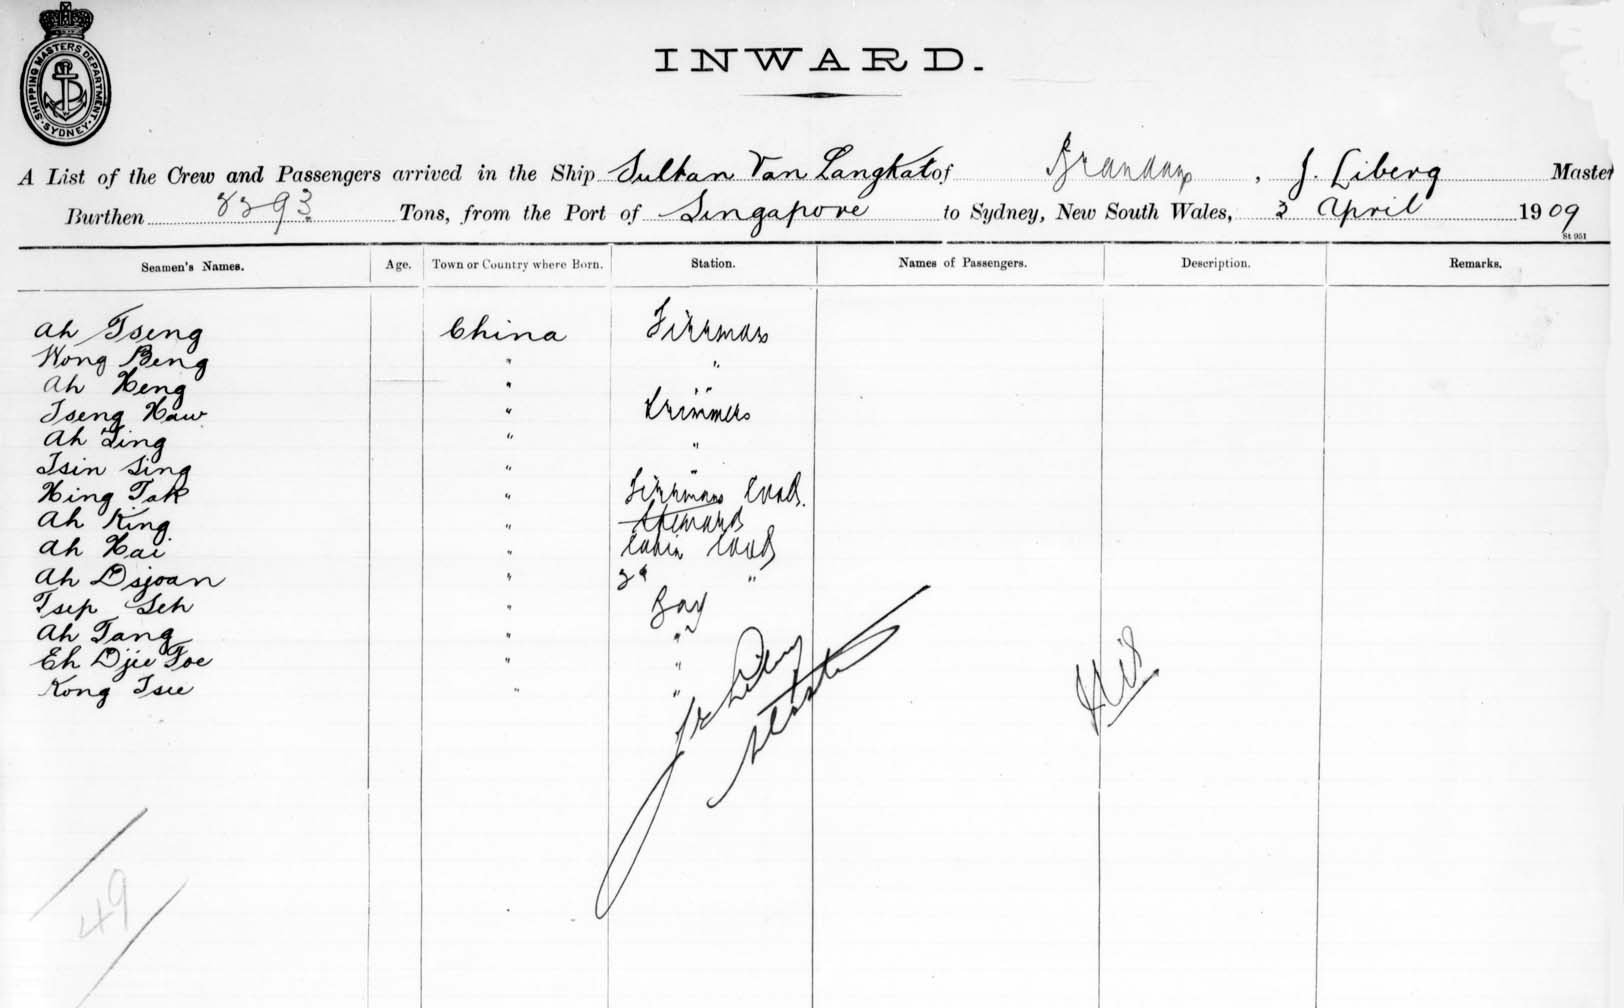 SHIPPING MASTERS DEPARTMENT. SYDNEY.
INWARD.
A List of the Crew and Passengers arrived in the Ship Sultan Van Langkat of , J. Liberg Master
Burthen Tons, from the Port of Singapore to Sydney, New South Wales, 3 April 1909
St 951
Seamen's Names. Age. Town or Country where Born. Station. Names of Passengers. Description. Remarks.
Ah Tseng China Firemans
Wong Beng " "
Ah Heng " "
Tseng Haw " Trimmers
Ah Ling " "
Tsin Sing " "
Hing Tak " Firemans Cook.
Ah King " Steward
Ah Hai " Cabin Cook
Ah Dsjoan " "
Tsep Seh " Boy
Ah Tang " "
Eh Djie Toe " "
Kong Tsie " "
Master
49